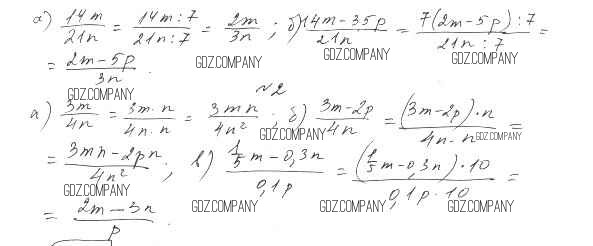 а) 14m/21n = 14m:7/21n:7 = 2m/3n ; б) 14m-35p/21n = 7(2m-5p):7/21n:7 =
= 2m-5p/3n .
GDZ.COMPANY GDZ.COMPANY GDZ.COMPANY
GDZ.COMPANY
~2
а) 3m/4n = 3m·n/4n·n = 3mn/4n² ; б) 3m-2p/4n = (3m-2p)·n/4n·n =
GDZ.COMPANY GDZ.COMPANY
= 3mn-2pn/4n² ; в) 1/5m-0,3n/0,1p = (1/5m-0,3n)·10/0,1p·10 =
GDZ.COMPANY
= 2m-3n/p .
GDZ.COMPANY GDZ.COMPANY GDZ.COMPANY